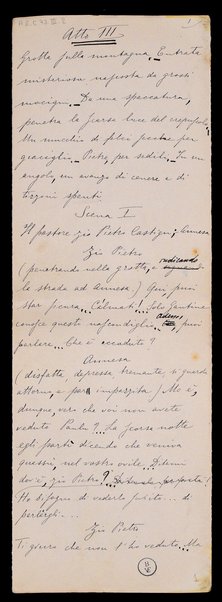 Atto III
1
Grotta sulla montagna. Entrata
misteriosa nascosta da grossi
macigni. Da una spaccatura,
penetra la scarsa luce del crepuscolo.
Un mucchio di felci per
giaciglio. Pietre, per sedili. In un
angolo, un avanzo di cenere e di
tizzoni spenti.
Scena I
Il pastore Zio Pietro Castigu; Annesa
Zio Pietro
(penetrando nella grotta, e indicando
la strada ad Annesa.) Qui, puoi
star sicura... Calmati!... Solo Gantine
conosce questo nascondiglio. Adesso, puoi
parlare... Che è accaduto?
Annesa
(disfatta, depressa tremante, si guarda
attorno, e par impazzita.) Ma è,
dunque, vero che voi non avete
veduto Paulu?... La scorsa notte
egli partì dicendo che veniva
quassù, nel vostro ovile... Ditemi
dov'è, zio Pietro?
Ho bisogno di vederlo subito... di
parlargli...
Zio Pietro
Ti giuro che non l'ho veduto... Ma